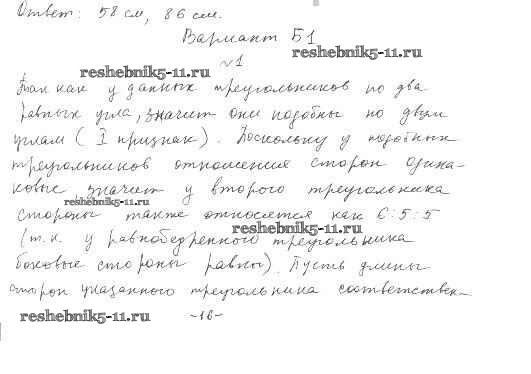 Ответ: 58 см, 86 см.
Вариант Б1
reshebnik5-11.ru
№1
reshebnik5-11.ru
Так как у данных треугольников по два
равных угла, значит они подобны по двум
углам (I признак). Поскольку у подобных
треугольников отношения сторон одина-
ковые значит у второго треугольника
reshebnik5-11.ru
стороны также относятся как 6:5:5
reshebnik5-11.ru
(т.к. у равнобедренного треугольника
боковые стороны равны). Пусть длины
сторон указанного треугольника соответствен-
reshebnik5-11.ru
-16-